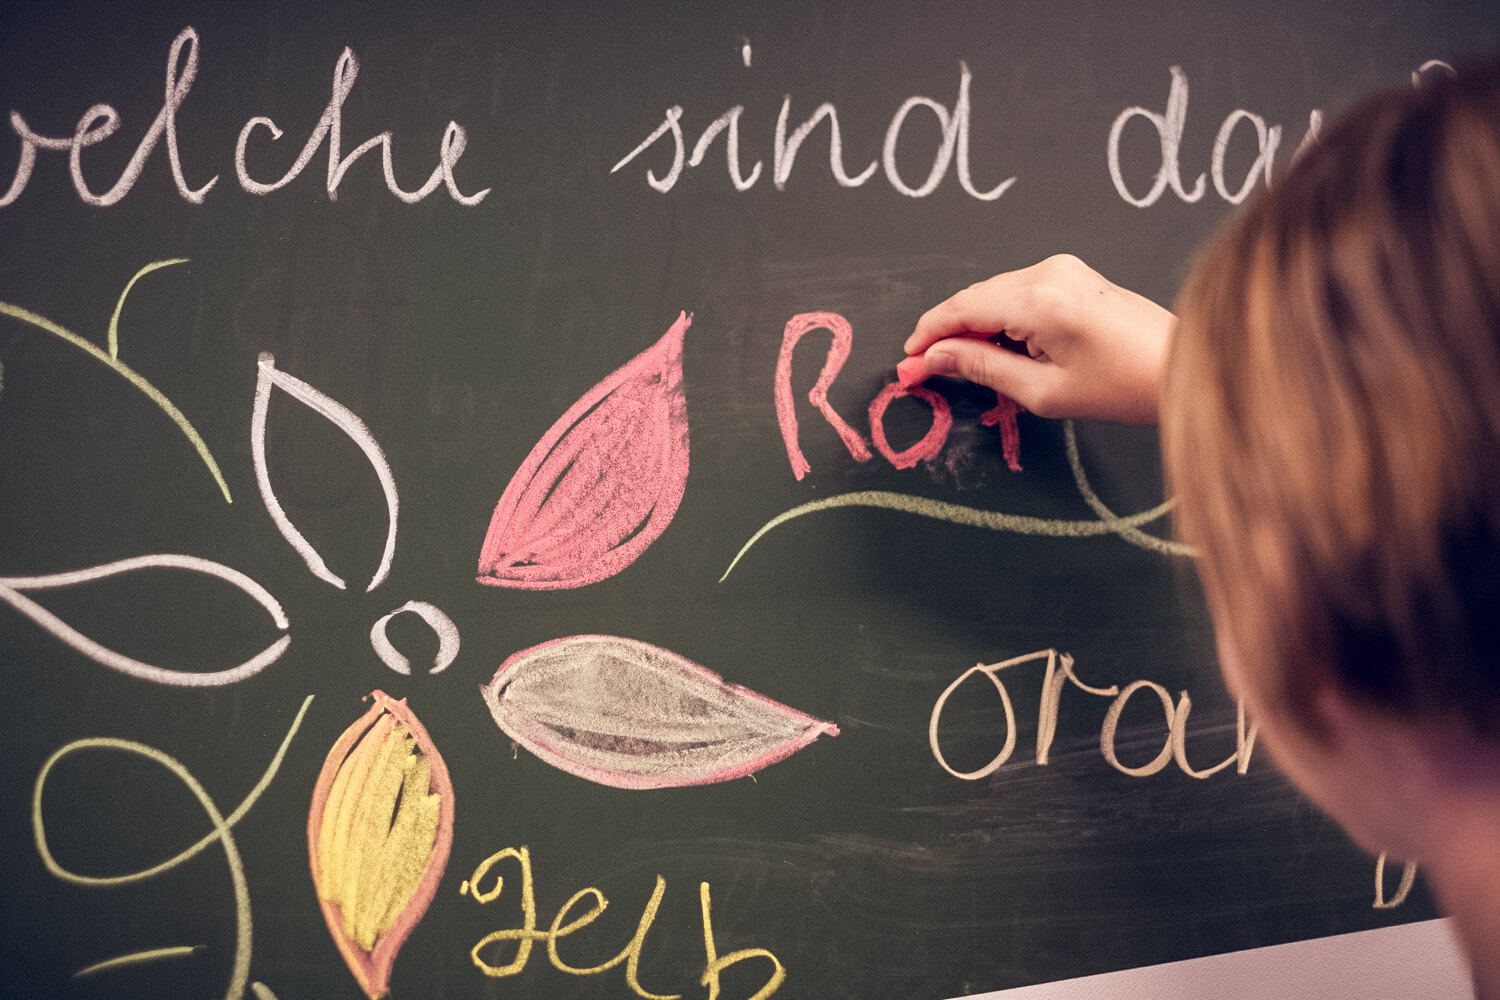 welche sind da
Rot
oran
gelb